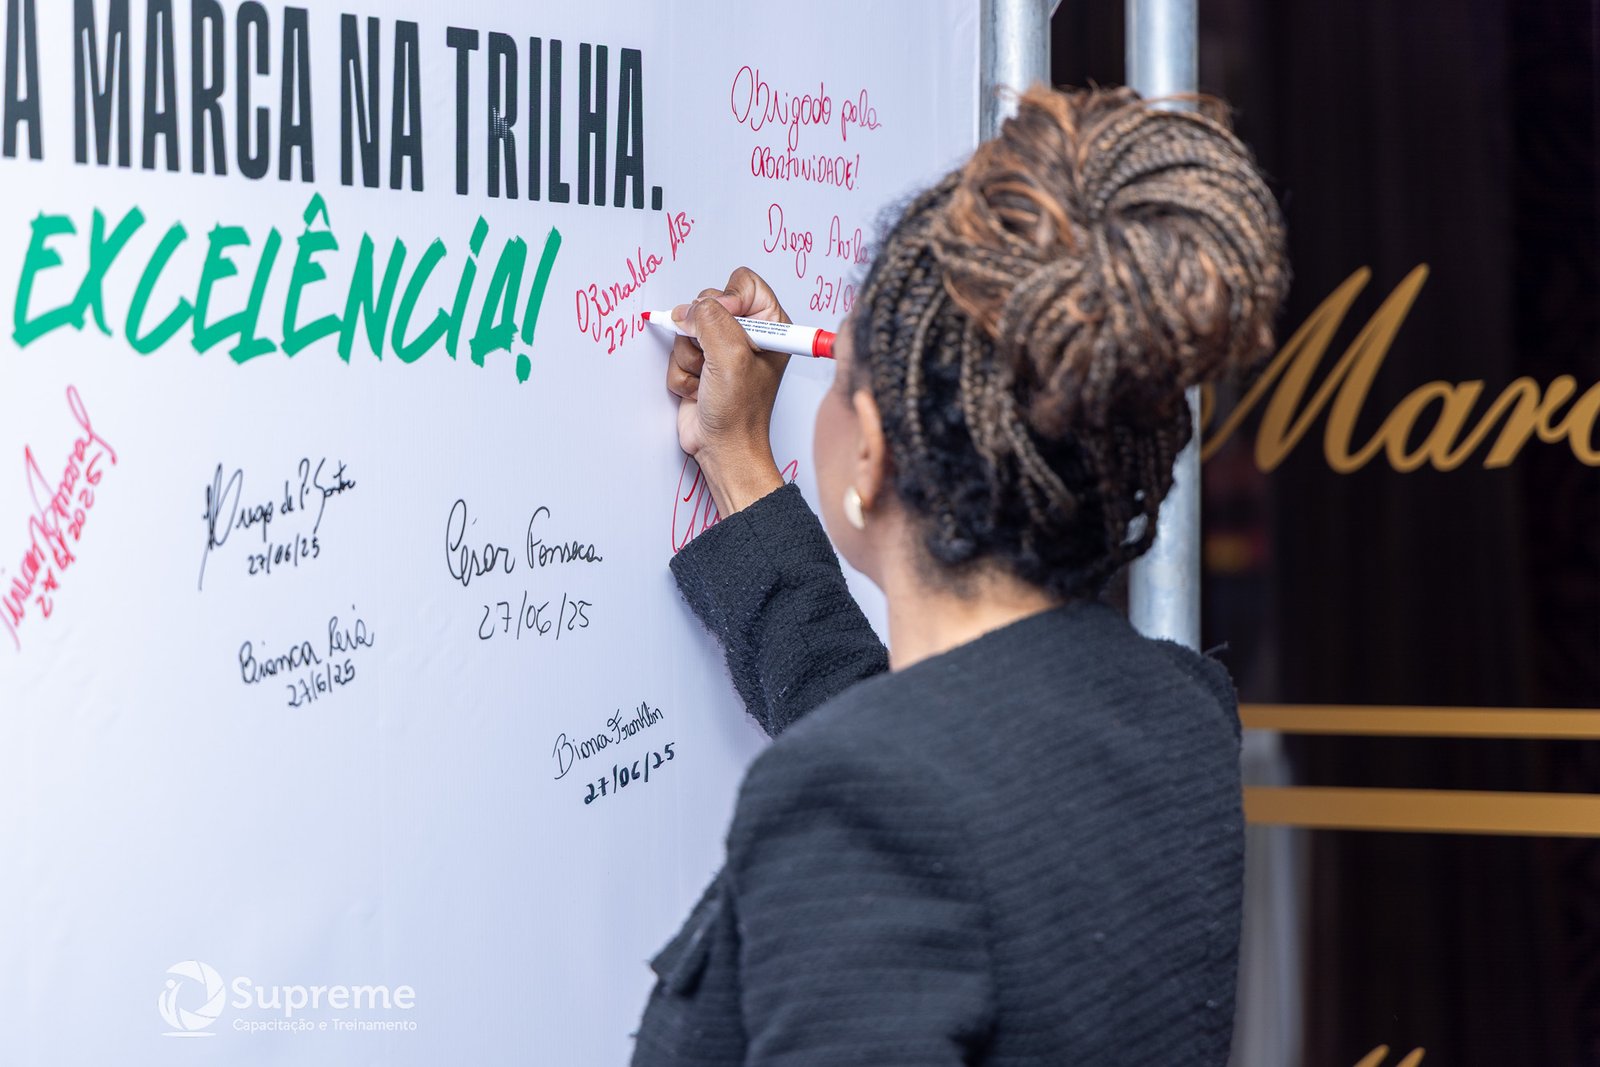 A MARCA NA TRILHA.
EXCELÊNCIA!
Obrigado pela
OPORTUNIDADE!
Diego
27/0
A.B.
27/
27/06/2025
de P. Santos
27/06/25
César Fonseca
27/06/25
Bianca Reis
27/6/25
Bianca Franklin
27/06/25
Marc
Supreme
Capacitação e Treinamento